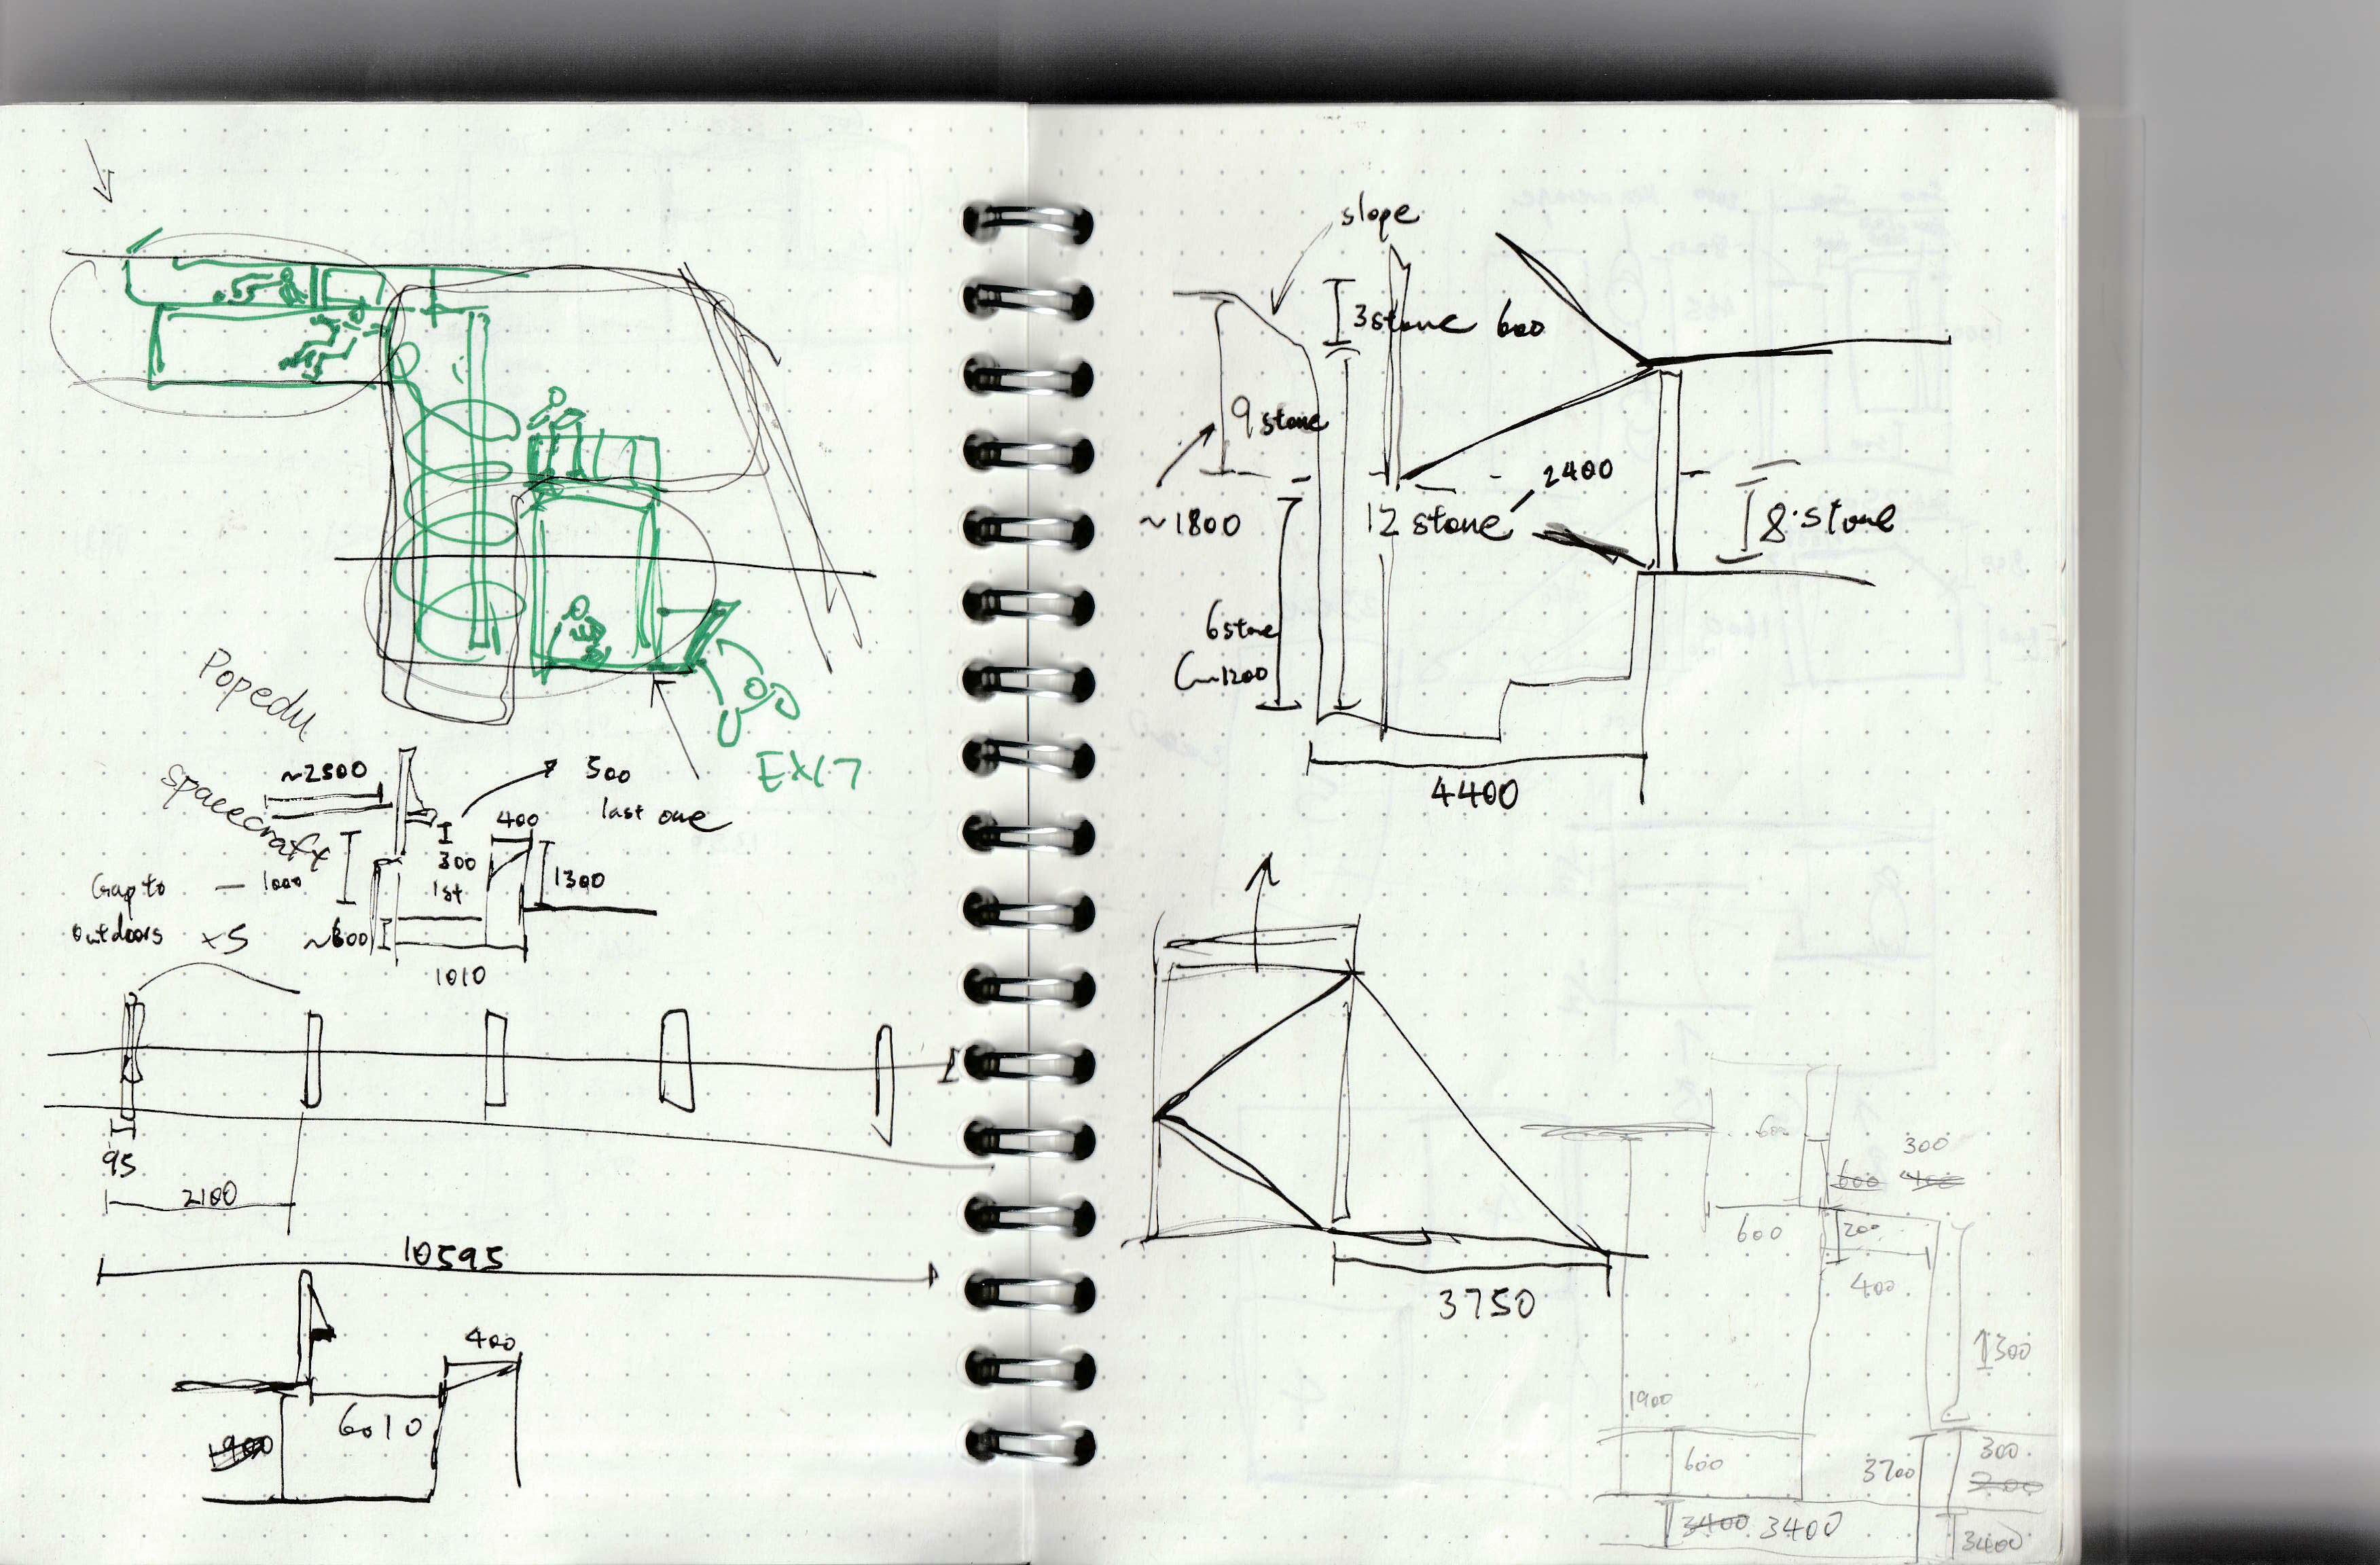 EXIT
Popedu
Spacecraft
~2500
500
last one
400
300
1st
1300
Gap to
outdoors
— 1000
x5
1010
95
2100
10595
400
6010
slope
3 stone 600
9 stone
~1800
12 stone
2400
8 stone
6 stone
(~1200
4400
3750
600
300
600 400
600
200
400
1300
1900
600
3700
300
3400 3400
3400